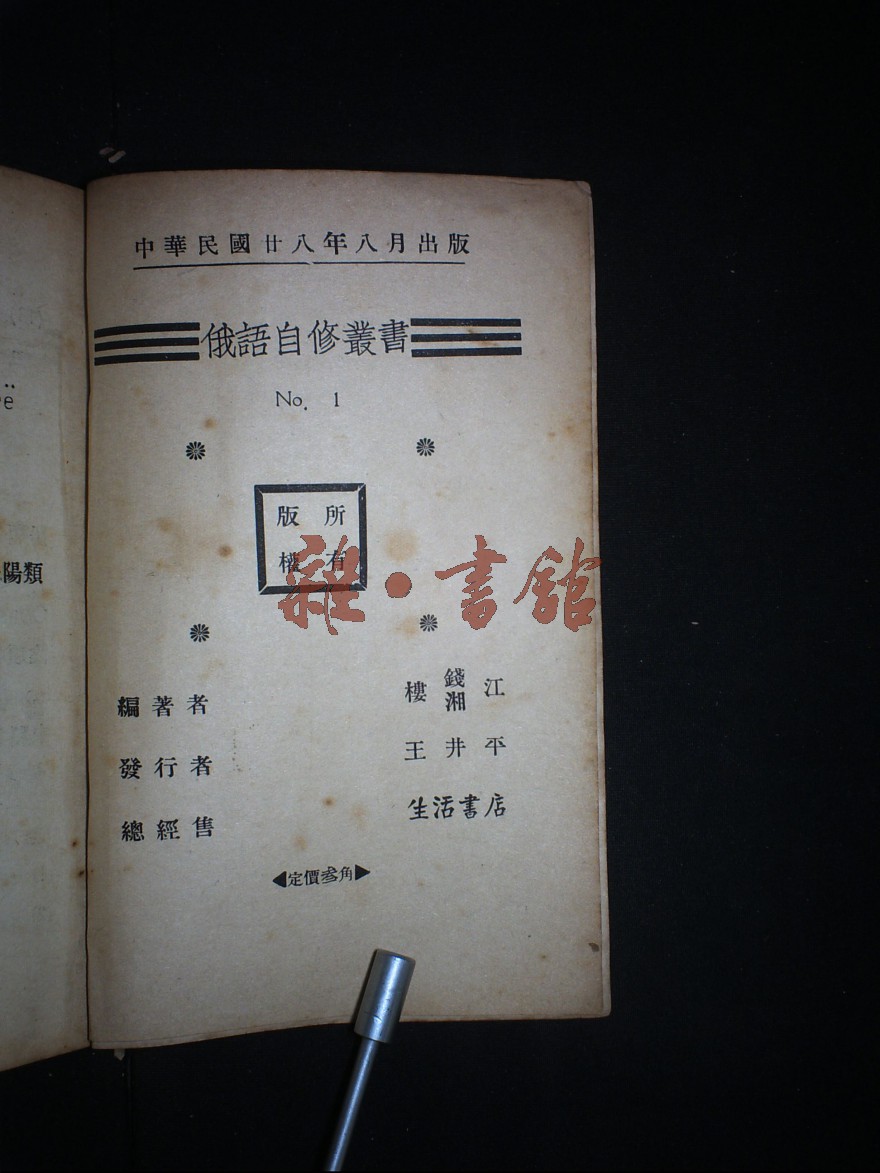 中華民國廿八年八月出版
俄語自修叢書
No. 1
版所
權有
編著者 樓錢湘江
發行者 王井平
總經售 生活書店
◀定價叁角▶
雜·書館
陽類